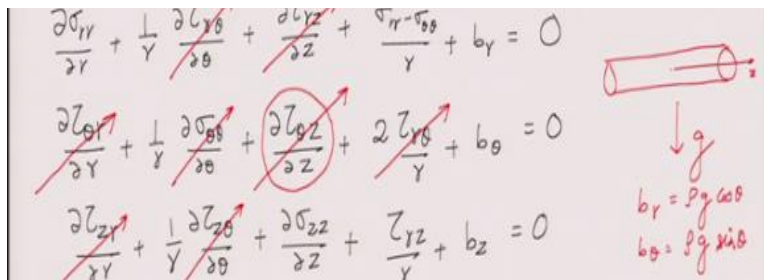 ∂σrr/∂r + 1/r ∂τrθ/∂θ + ∂τrz/∂z + σrr-σθθ/r + br = 0
∂τθr/∂r + 1/r ∂σθθ/∂θ + ∂τθz/∂z + 2 τrθ/r + bθ = 0
∂τzr/∂r + 1/r ∂τzθ/∂θ + ∂σzz/∂z + τrz/r + bz = 0
z
g
br = ρg cosθ
bθ = ρg sinθ